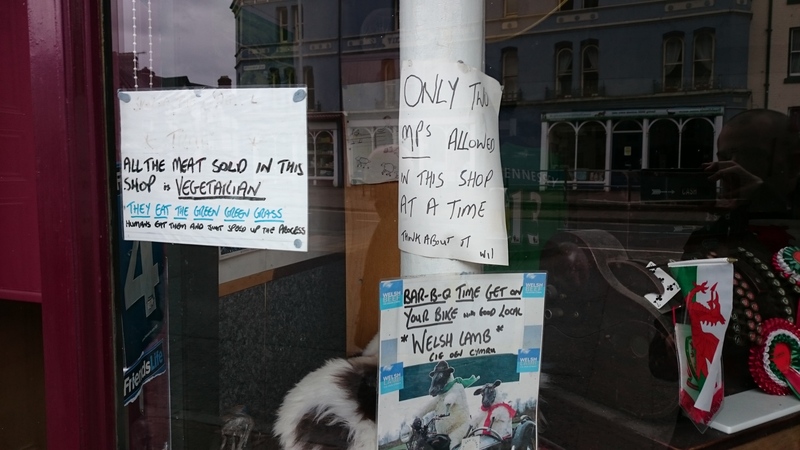 ALL THE MEAT SOLD IN THIS
SHOP is VEGETARIAN
THEY EAT THE GREEN GREEN GRASS
HUMANS EAT THEM AND JUST SPEED UP THE PROCESS
ONLY TWO
MPs ALLOWED
IN THIS SHOP
AT A TIME
THINK ABOUT IT
Wil
BAR-B-Q TIME GET ON
YOUR BIKE WITH GOOD LOCAL
* WELSH LAMB *
CIG OEN CYMRU
4
FriendsLife